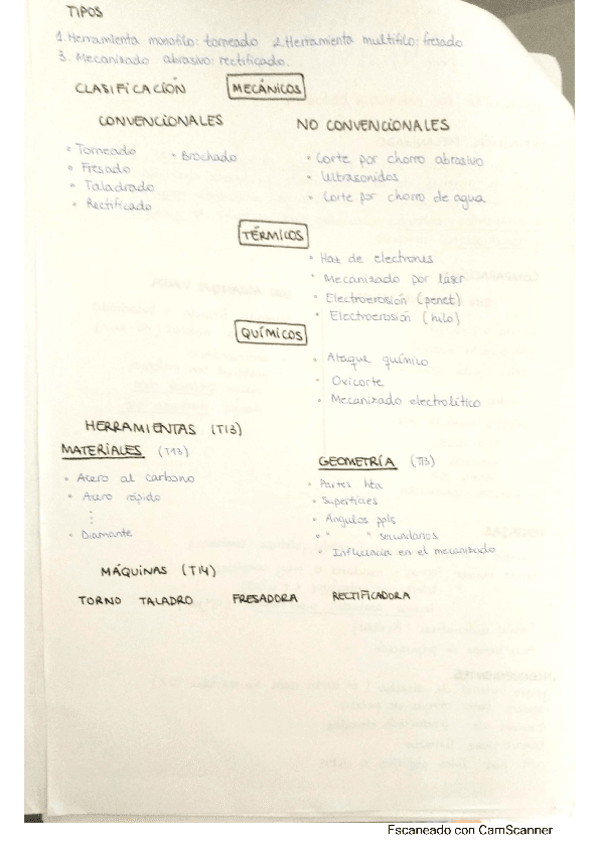 TIPOS
1. Herramienta monofilo: torneado 2. Herramienta multifilo: fresado
3. Mecanizado abrasivo: rectificado.
CLASIFICACIÓN MECÁNICOS
CONVENCIONALES NO CONVENCIONALES
• Torneado • Brochado • Corte por chorro abrasivo
• Fresado • Ultrasonidos
• Taladrado • Corte por chorro de agua
• Rectificado
TÉRMICOS
• Haz de electrones
• Mecanizado por láser
• Electroerosión (penet)
• Electroerosión (hilo)
QUÍMICOS
• Ataque químico
• Oxicorte
• Mecanizado electrolítico
HERRAMIENTAS (T13)
MATERIALES (T13) GEOMETRÍA (T13)
• Acero al carbono • Partes hta
• Acero rápido • Superficies
⋮ • Ángulos ppls
• Diamante • " " secundarios
• Influencia en el mecanizado
MÁQUINAS (T14)
TORNO TALADRO FRESADORA RECTIFICADORA
Escaneado con CamScanner